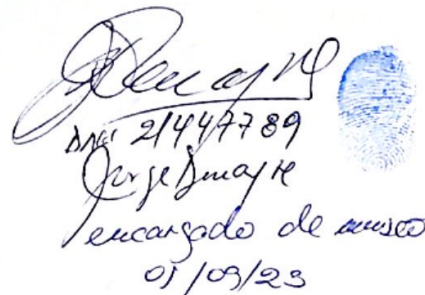 DNI 21447789
Jorge
encargado de museo
01/09/23